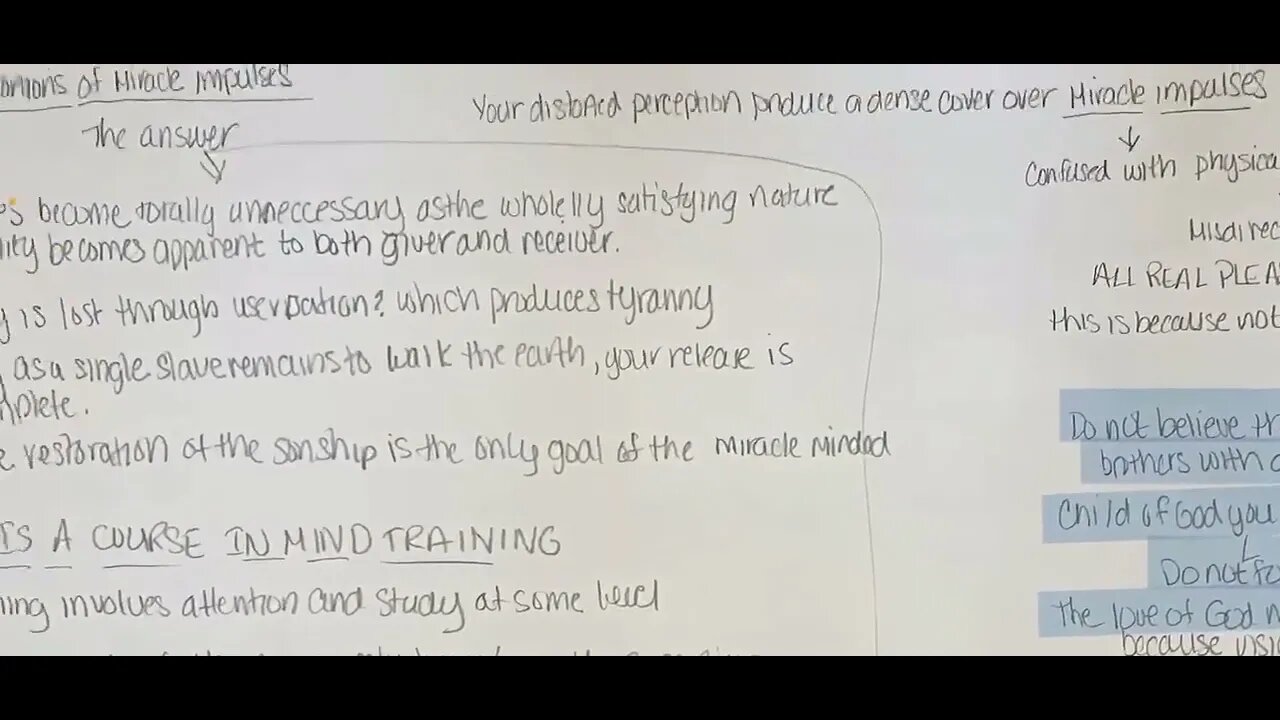 of Miracle Impulses
The answer
become totally unneccessary as the wholelly satisfying nature
lity becomes apparent to both giver and receiver.
is lost through userpation? which produces tyranny
as a single slave remains to walk the earth, your release is
plete.
restoration of the sonship is the only goal of the miracle minded
IS A COURSE IN MIND TRAINING
ning involves attention and study at some level
Your distorted perception produce a dense cover over Miracle impulses
Confused with physica
Misdirec
ALL REAL PLEA
this is because not
Do not believe th
brothers with
Child of God you
Do not fo
The love of God
because visi